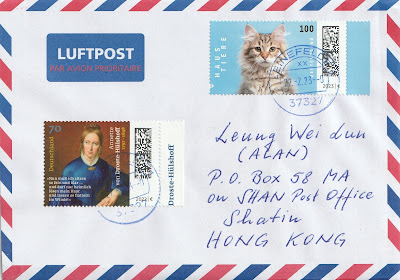 LUFTPOST
PAR AVION PRIORITAIRE
HAUS
TIERE
100
2023 €
37327
Deutschland
70
Annette
von Droste-Hülshoff
Droste-Hülshoff
Leung Wei dun
(ALAN)
P.O. Box 58 MA
on SHAN Post Office
Shatin
HONG KONG